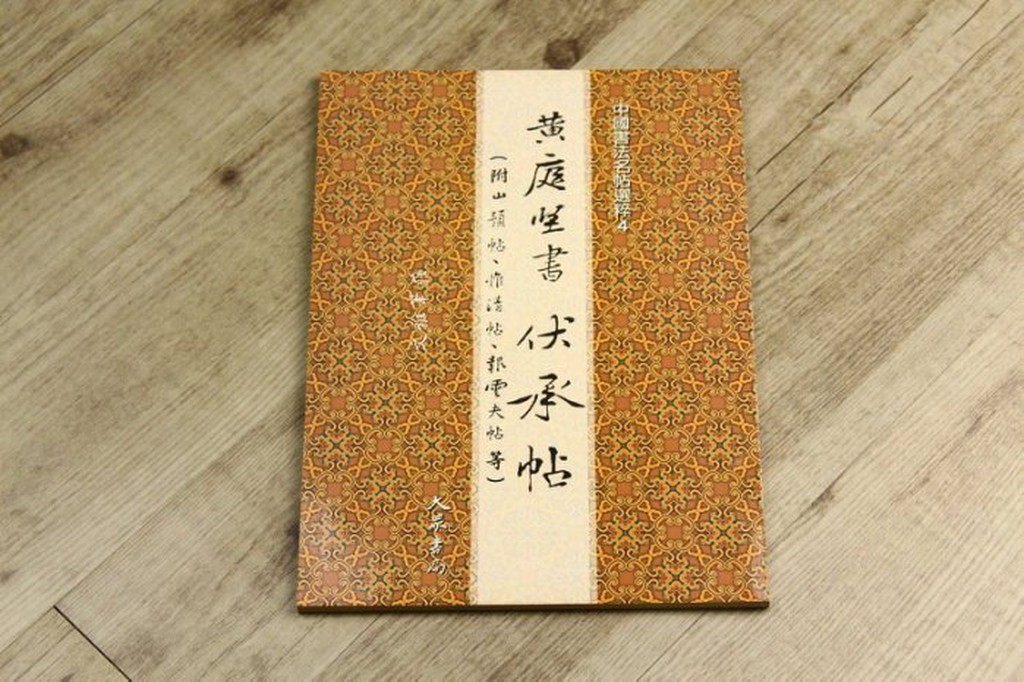 中國書法名帖選粹4
黃庭坚書 伏承帖
(附山預帖、惟清帖、報雲夫帖等)
大眾書局